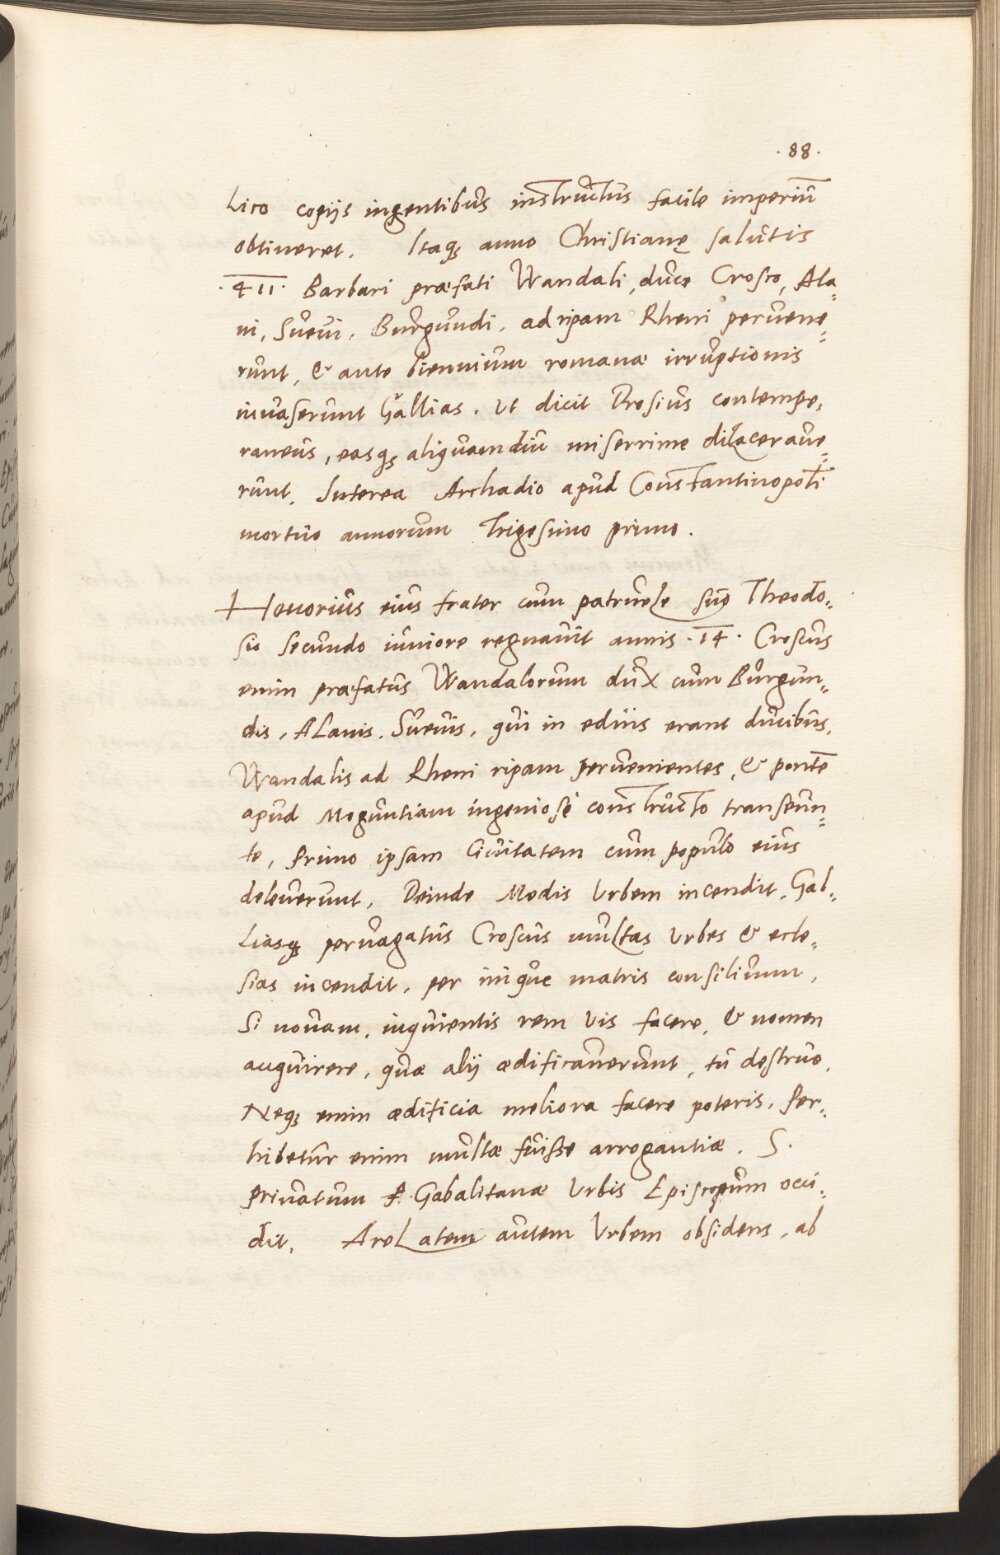 .88.
Lico copijs ingentibus instructus facile imperiū
obtineret. Itaqȝ anno Christianę salutis
.411. Barbari præfati Wandali, duce Crosco, Ala=
ni, Suevi, Burgundi, ad ripam Rheni pervene=
runt, & ante biennium romanæ irruptionis
invaserunt Gallias. Ut dicit Orosius contempo,
raneus, easqȝ aliquamdiu miserrime dilacerave=
runt. Interea Archadio apud Constantinopoli
mortuo annorum Trigesimo primo.
Honorius eius frater cum patruele suo Theodo=
sio secundo iuniore regnavit annis .14. Croscus
enim præfatus Wandalorum dux cum Burgun=
dis, ALanis, Suevis, qui in ediis erant ducibus,
Wandalis ad Rheni ripam pervenientes, & pontē
apud Moguntiam ingeniose constructo transeun=
te, Primo ipsam Civitatem cum populo eius
deleverunt, Deinde Modis Urbem incendit, Gal=
Liasqȝ pervagatus Croscus multas Urbes & ecle=
sias incendit, per iniquæ matris consilium,
Si novam, inquientis rem vis facere, & nomen
acquirere, quæ alij ædificaverunt, tu destruo,
Neqȝ enim ædificia meliora facere poteris. Per=
hibetur enim multæ fuisse arrogantiæ. S.
Privatum P. Gabalitanæ Urbis Episcopum occi=
dit, AreLatem autem Urbem obsidens, ab